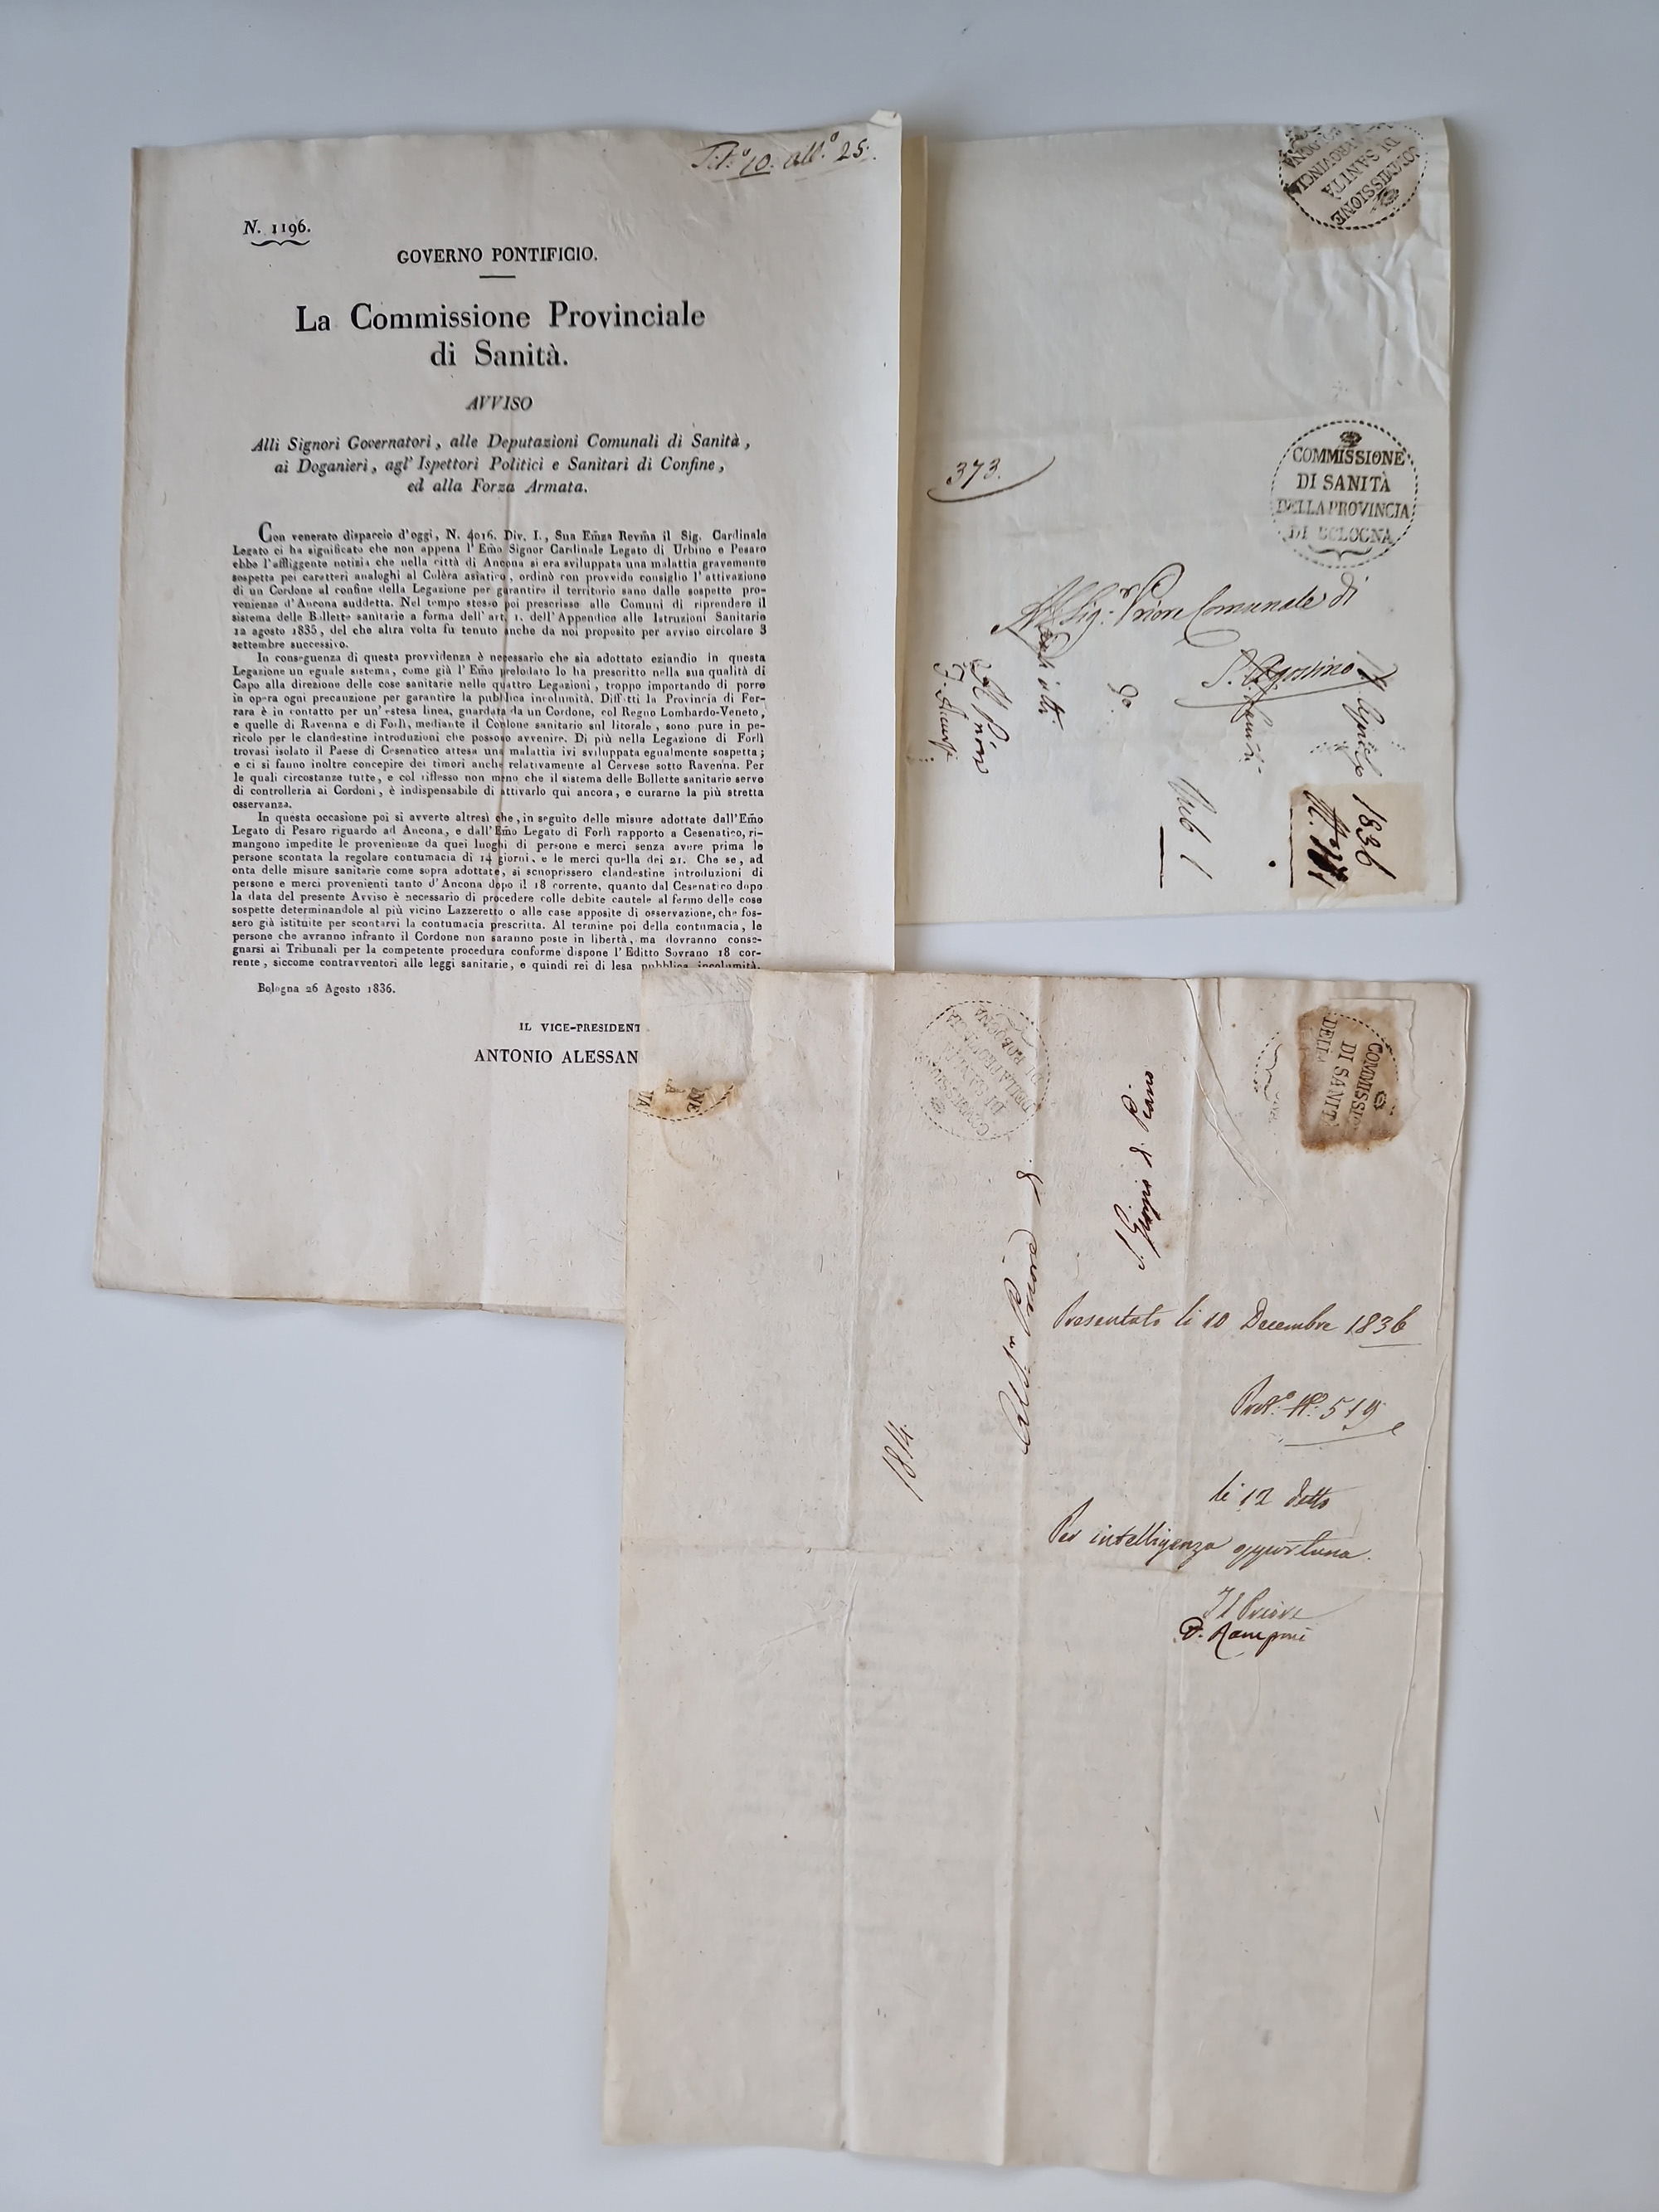 Tit.° 10. all.° 25.
N. 1196.
GOVERNO PONTIFICIO.
La Commissione Provinciale
di Sanità.
AVVISO
Alli Signori Governatori, alle Deputazioni Comunali di Sanità,
ai Doganieri, agl' Ispettori Politici e Sanitari di Confine,
ed alla Forza Armata.
Con venerato dispaccio d'oggi, N. 4016. Div. I., Sua Em̃za Revm̃a il Sig. Cardinale
Legato ci ha significato che non appena l'Em̃o Signor Cardinale Legato di Urbino e Pesaro
ebbe l'affliggente notizia che nella città di Ancona si era sviluppata una malattia gravemente
sospetta pei caratteri analoghi al Colèra asiatico, ordinò con provvido consiglio l'attivazione
di un Cordone al confine della Legazione per garantire il territorio sano dalle sospette pro-
venienze d'Ancona suddetta. Nel tempo stesso poi prescrisse alle Comuni di riprendere il
sistema delle Bollette sanitarie a forma dell'art. 1. dell'Appendice alle Istruzioni Sanitarie
12 agosto 1835, del che altra volta fu tenuto anche da noi proposito per avviso circolare 3
settembre successivo.
In conseguenza di questa provvidenza è necessario che sia adottato eziandio in questa
Legazione un eguale sistema, come già l'Em̃o prelodato lo ha prescritto nella sua qualità di
Capo alla direzione delle cose sanitarie nelle quattro Legazioni, troppo importando di porre
in opera ogni precauzione per garantire la pubblica incolumità. Diffatti la Provincia di Fer-
rara è in contatto per un'estesa linea, guardata da un Cordone, col Regno Lombardo-Veneto,
e quelle di Ravenna e di Forlì, mediante il Cordone sanitario sul litorale, sono pure in pe-
ricolo per le clandestine introduzioni che possono avvenire. Di più nella Legazione di Forlì
trovasi isolato il Paese di Cesenatico attesa una malattia ivi sviluppata egualmente sospetta;
e ci si fanno inoltre concepire dei timori anche relativamente al Cervese sotto Ravenna. Per
le quali circostanze tutte, e col riflesso non meno che il sistema delle Bollette sanitarie serve
di controlleria ai Cordoni, è indispensabile di attivarlo qui ancora, e curarne la più stretta
osservanza.
In questa occasione poi si avverte altresì che, in seguito delle misure adottate dall'Em̃o
Legato di Pesaro riguardo ad Ancona, e dall'Em̃o Legato di Forlì rapporto a Cesenatico, ri-
mangono impedite le provenienze da quei luoghi di persone e merci senza avere prima le
persone scontata la regolare contumacia di 14 giorni, e le merci quella dei 21. Che se, ad
onta delle misure sanitarie come sopra adottate, si scuoprissero clandestine introduzioni di
persone e merci provenienti tanto d'Ancona dopo il 18 corrente, quanto dal Cesenatico dopo
la data del presente Avviso è necessario di procedere colle debite cautele al fermo delle cose
sospette determinandole al più vicino Lazzeretto o alle case apposite di osservazione, che fos-
sero già istituite per scontarvi la contumacia prescritta. Al termine poi della contumacia, le
persone che avranno infranto il Cordone non saranno poste in libertà, ma dovranno conse-
gnarsi ai Tribunali per la competente procedura conforme dispone l'Editto Sovrano 18 cor-
rente, siccome contravventori alle leggi sanitarie, e quindi rei di lesa pubblica incolumità.
Bologna 26 Agosto 1836.
IL VICE-PRESIDENT
ANTONIO ALESSAN
COMMISSIONE
DI SANITÀ
PROVINCIA
OLOGNA
373.
COMMISSIONE
DI SANITÀ
DELLA PROVINCIA
DI BOLOGNA
Al Sig.re Priore Comunale di
S. Agostino
Il Priore
1836
COMMISSIONE
DI SANITÀ
DELLA PROVINCIA
DI BOLOGNA
COMMISSI
DI SANIT
DELLA
NE
A
VA
1814
All Sr. Priore di
S. Giorgio di Piano
Presentato li 10 Decembre 1836
Prot.° N.° 519
li 12 detto
Per intelligenza opportuna.
Il Priore
D. Ramponi